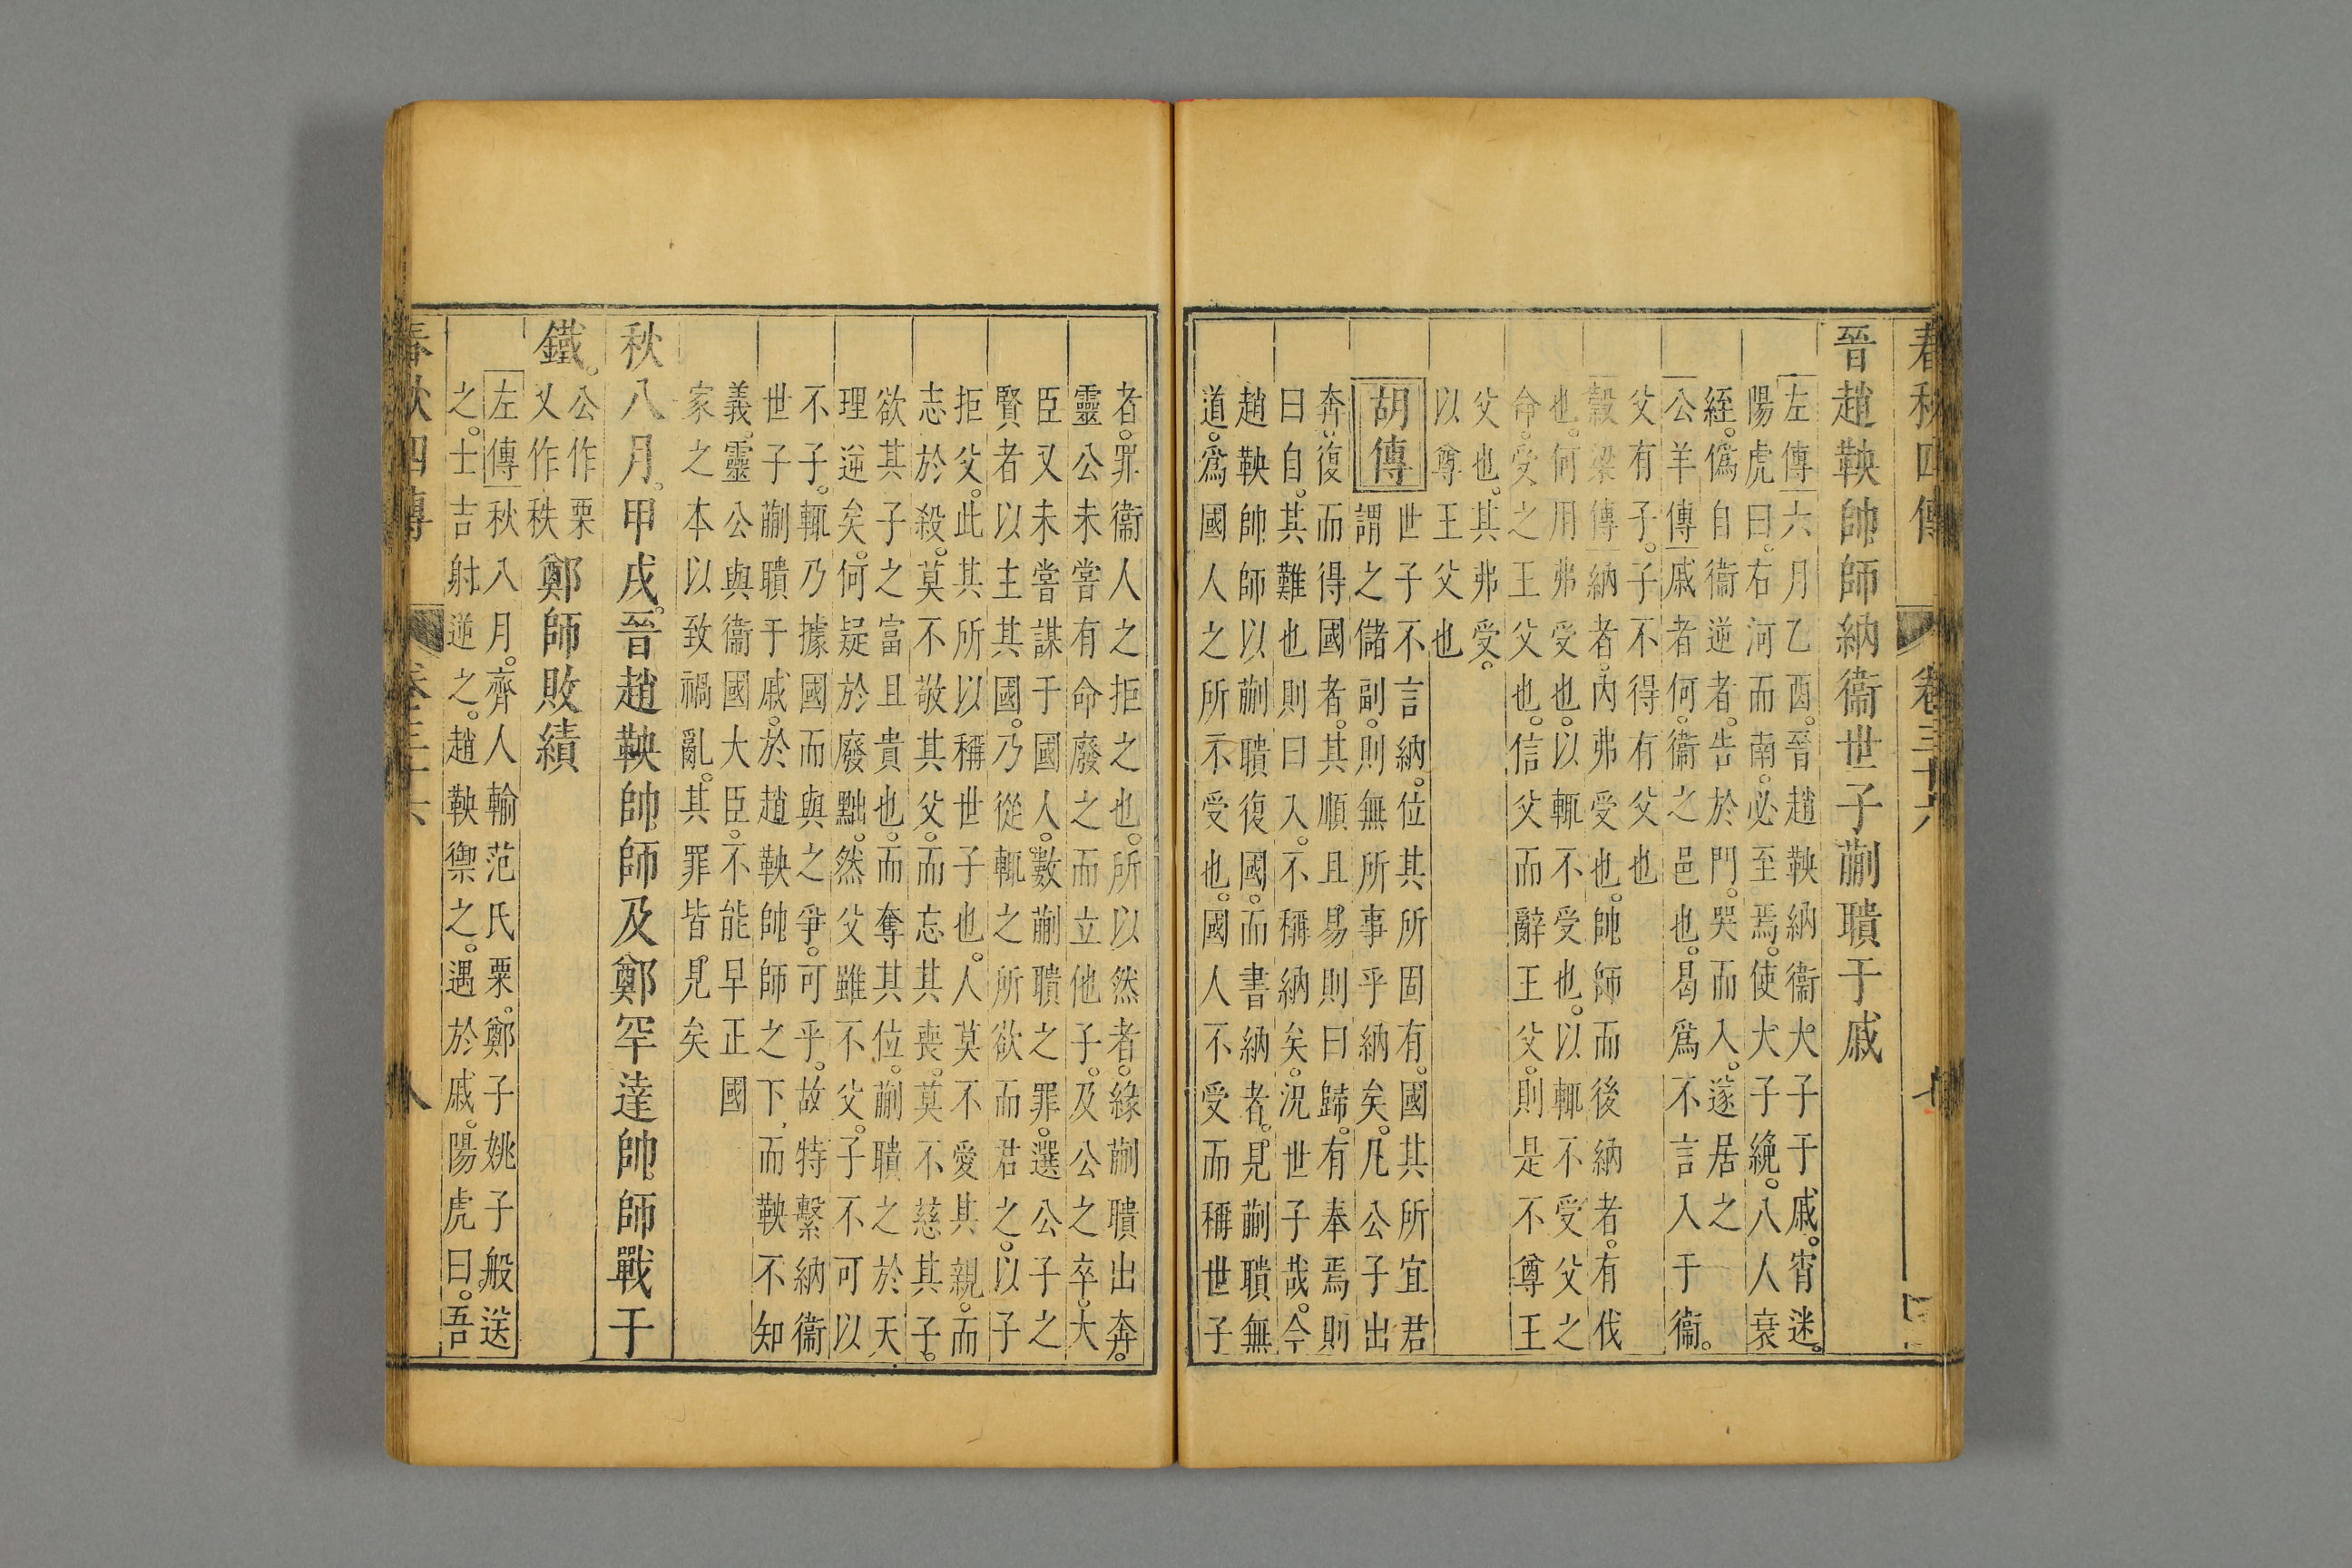 春秋四傳 卷三十六 七
晉趙鞅帥師納衞世子蒯聵于戚
左傳六月乙酉。晉趙鞅納衞大子于戚。宵迷。
陽虎曰。右河而南。必至焉。使大子絻。八人衰
絰。僞自衞逆者。告於門。哭而入。遂居之
公羊傳戚者何。衞之邑也。曷爲不言入于衞。
父有子。子不得有父也
穀梁傳納者。內弗受也。帥師而後納者。有伐
也。何用弗受也。以輒不受也。以輒不受父之
命。受之王父也。信父而辭王父。則是不尊王
父也。其弗受。
以尊王父也
胡傳
世子不言納。位其所固有。國其所宜君
謂之儲副。則無所事乎納矣。凡公子出
奔。復而得國者。其順且易則曰歸。有奉焉則
曰自。其難也則曰入。不稱納矣。況世子哉。今
趙鞅帥師以蒯聵復國。而書納者。見蒯聵無
道。爲國人之所不受也。國人不受而稱世子
者。罪衞人之拒之也。所以然者。緣蒯聵出奔。
靈公未嘗有命廢之而立他子。及公之卒。大
臣又未嘗謀于國人。數蒯聵之罪。選公子之
賢者以主其國。乃從輒之所欲而君之。以子
拒父。此其所以稱世子也。人莫不愛其親。而
志於殺。莫不敬其父。而忘其喪。莫不慈其子。
欲其子之富且貴也。而奪其位。蒯聵之於天
理逆矣。何疑於廢黜。然父雖不父。子不可以
不子。輒乃據國而與之爭。可乎。故特繫納衞
世子蒯聵于戚。於趙鞅帥師之下，而鞅不知
義。靈公與衞國大臣。不能早正國
家之本以致禍亂。其罪皆見矣
秋八月。甲戌。晉趙鞅帥師及鄭罕達帥師戰于
鐵。公作栗
又作秩
鄭師敗績
左傳秋八月。齊人輸范氏粟。鄭子姚子般送
之。士吉射逆之。趙鞅禦之。遇於戚。陽虎曰。吾
春秋四傳 卷三十六 八